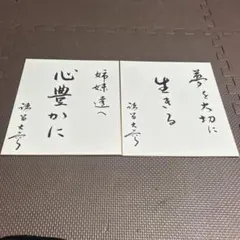 夢を大切に
生きる
姉妹達へ
心豊かに